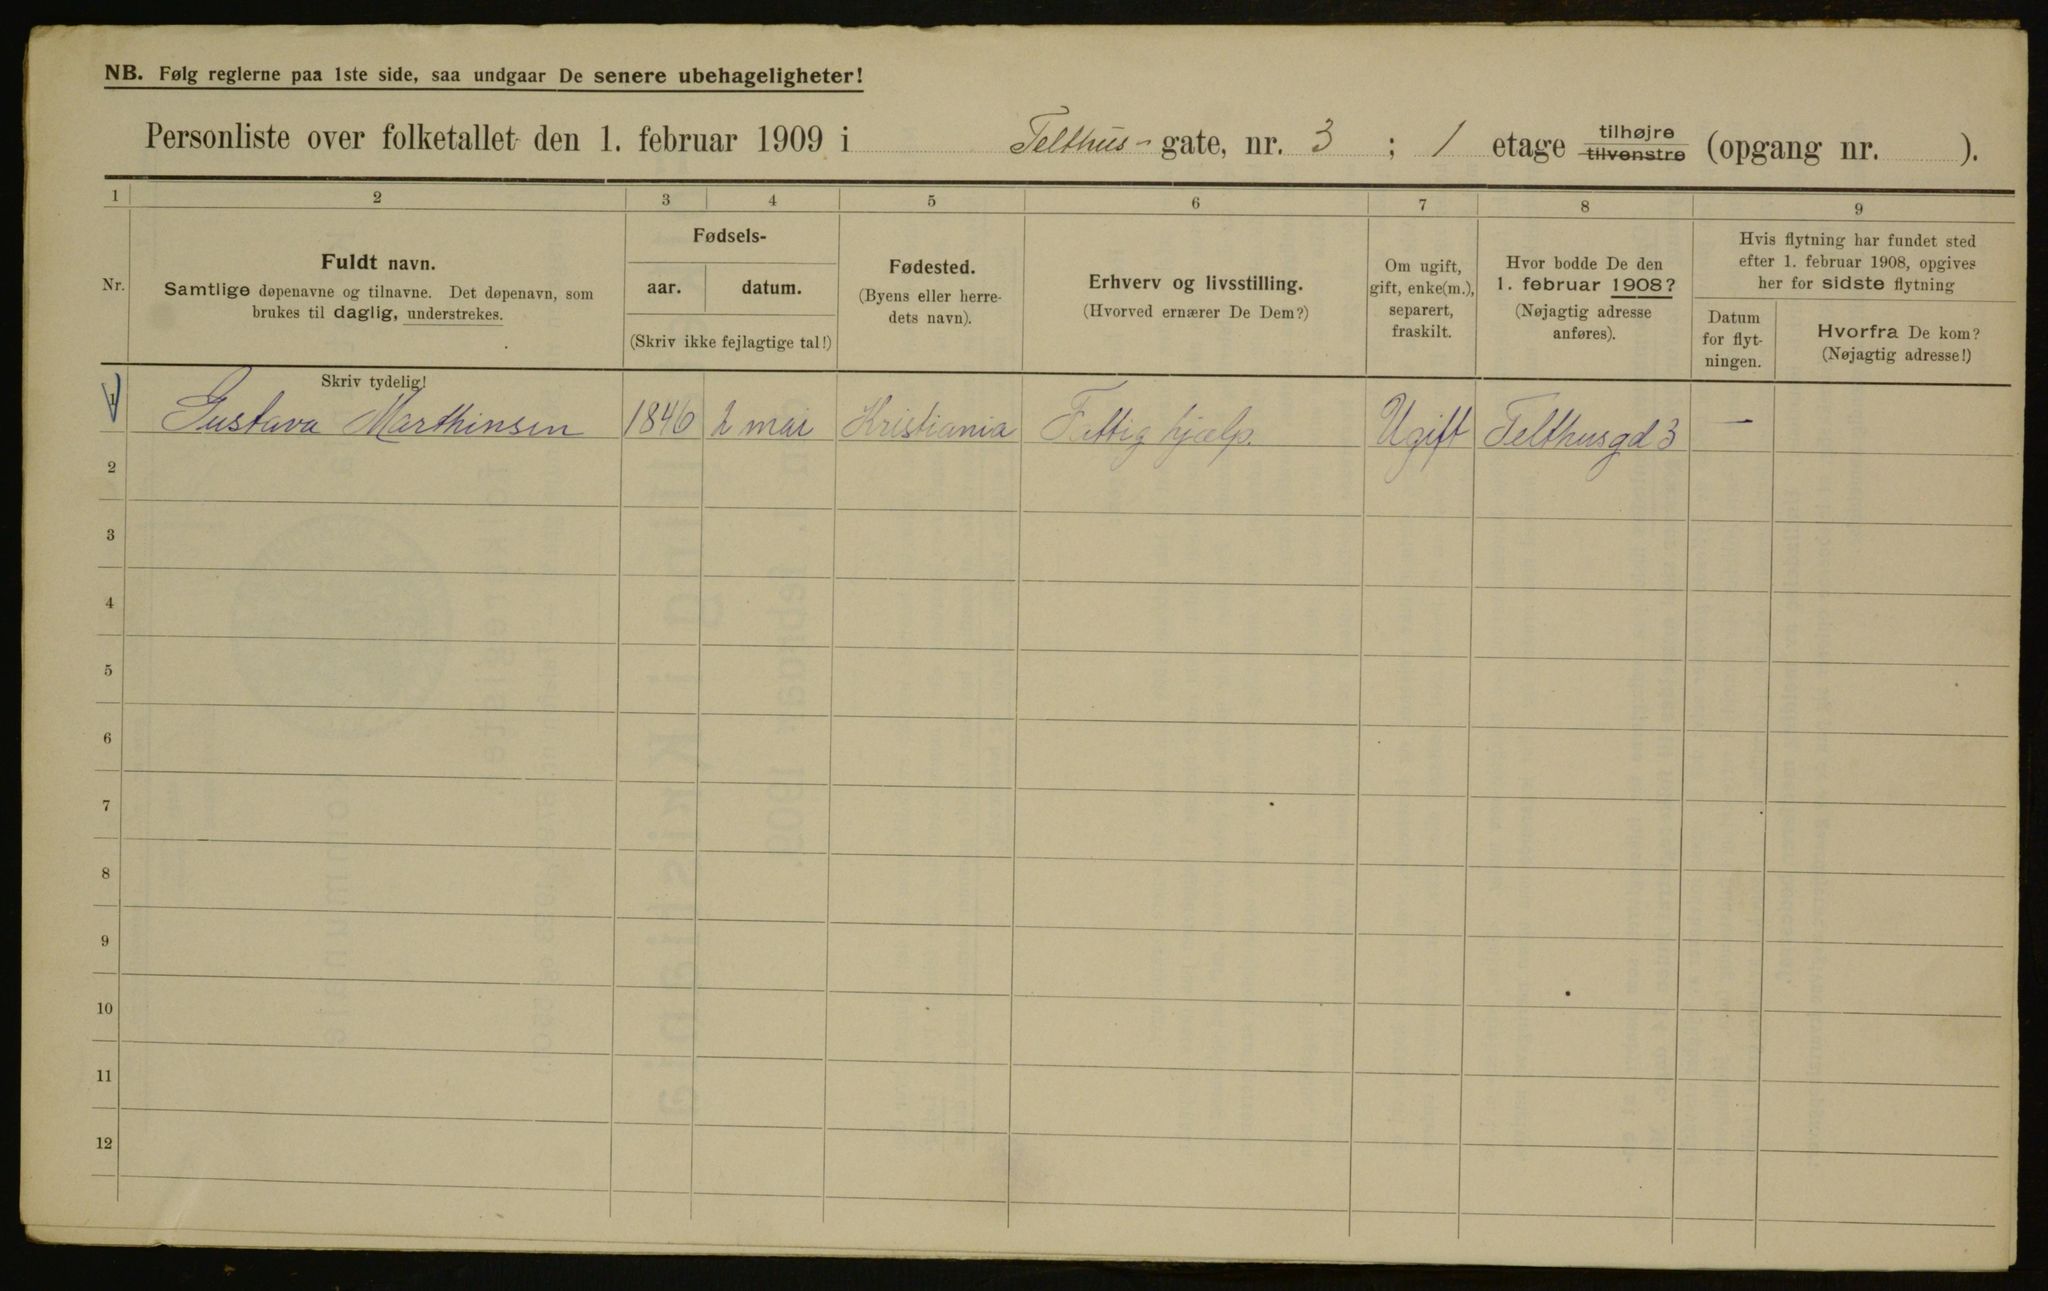 NB. Følg reglerne paa 1ste side, saa undgaar De senere ubehageligheter!
Personliste over folketallet den 1. februar 1909 i Telthus- gate, nr. 3 ; 1 etage tilhøjre tilvenstre (opgang nr. ).
1 2 3 4 5 6 7 8 9
Nr.
Fuldt navn.
Samtlige døpenavne og tilnavne. Det døpenavn, som
brukes til daglig, understrekes.
Skriv tydelig!
Fødsels-
aar. datum.
(Skriv ikke fejlagtige tal!)
Fødested.
(Byens eller herre-
dets navn).
Erhverv og livsstilling.
(Hvorved ernærer De Dem?)
Om ugift,
gift, enke(m.),
separert,
fraskilt.
Hvor bodde De den
1. februar 1908?
(Nøjagtig adresse
anføres).
Hvis flytning har fundet sted
efter 1. februar 1908, opgives
her for sidste flytning
Datum
for flyt-
ningen.
Hvorfra De kom?
(Nøjagtig adresse!)
1 Gustava Marthinsen 1846 2 mai Kristiania Fattig hjælp. Ugift Telthusgd 3 —
2
3
4
5
6
7
8
9
10
11
12